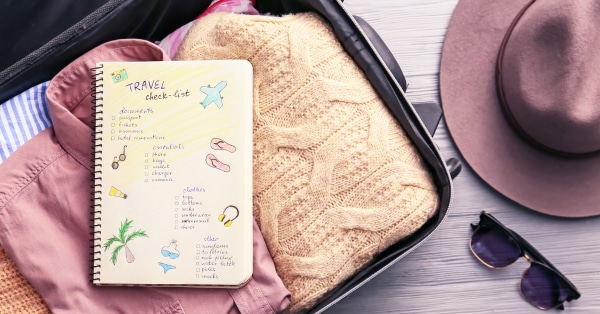 TRAVEL
check-list
documents
passport
tickets
insurance
hotel reservations
essentials
phone
keys
wallet
charger
camera
clothes
tops
bottoms
socks
underwear
shoes
other
sunglasses
toiletries
water bottle
books
snacks